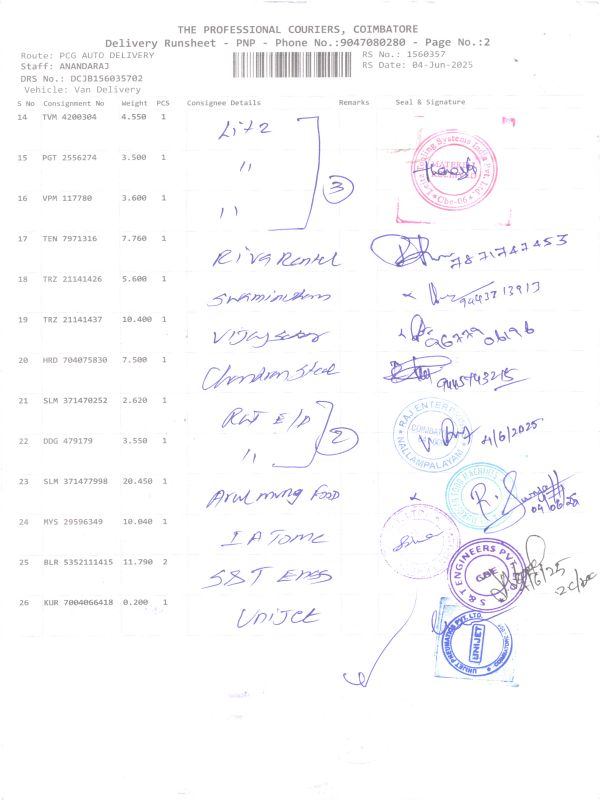 THE PROFESSIONAL COURIERS, COIMBATORE
Delivery Runsheet - PNP - Phone No.:9047080280 - Page No.:2
Route: PCG AUTO DELIVERY RS No.: 1560357
Staff: ANANDARAJ RS Date: 04-Jun-2025
DRS No.: DCJB156035702
Vehicle: Van Delivery
S No Consignment No Weight PCS Consignee Details Remarks Seal & Signature
14 TVM 4200304 4.550 1
15 PGT 2556274 3.500 1 "
3
16 VPM 117780 3.600 1 "
17 TEN 7971316 7.760 1 Riva Rental 7871747453
18 TRZ 21141426 5.600 1 9443713913
19 TRZ 21141437 10.400 1 96779 06196
20 HRD 704075830 7.500 1 Chandran Steel 9445743215
21 SLM 371470252 2.620 1
RAJ ENTERPR
2
4/6/2025
NALLAMPALAYAM
22 DDG 479179 3.550 1 "
23 SLM 371477998 20.450 1 Food
04/06/25
24 MYS 29596349 10.040 1 IATOME
25 BLR 5352111415 11.790 2 S&T Engs
S & T ENGINEERS PVT
CBE
26 KUR 7004066418 0.200 1 Unijet
UNIJET PNEUMATICS PVT. LTD.
UNIJET